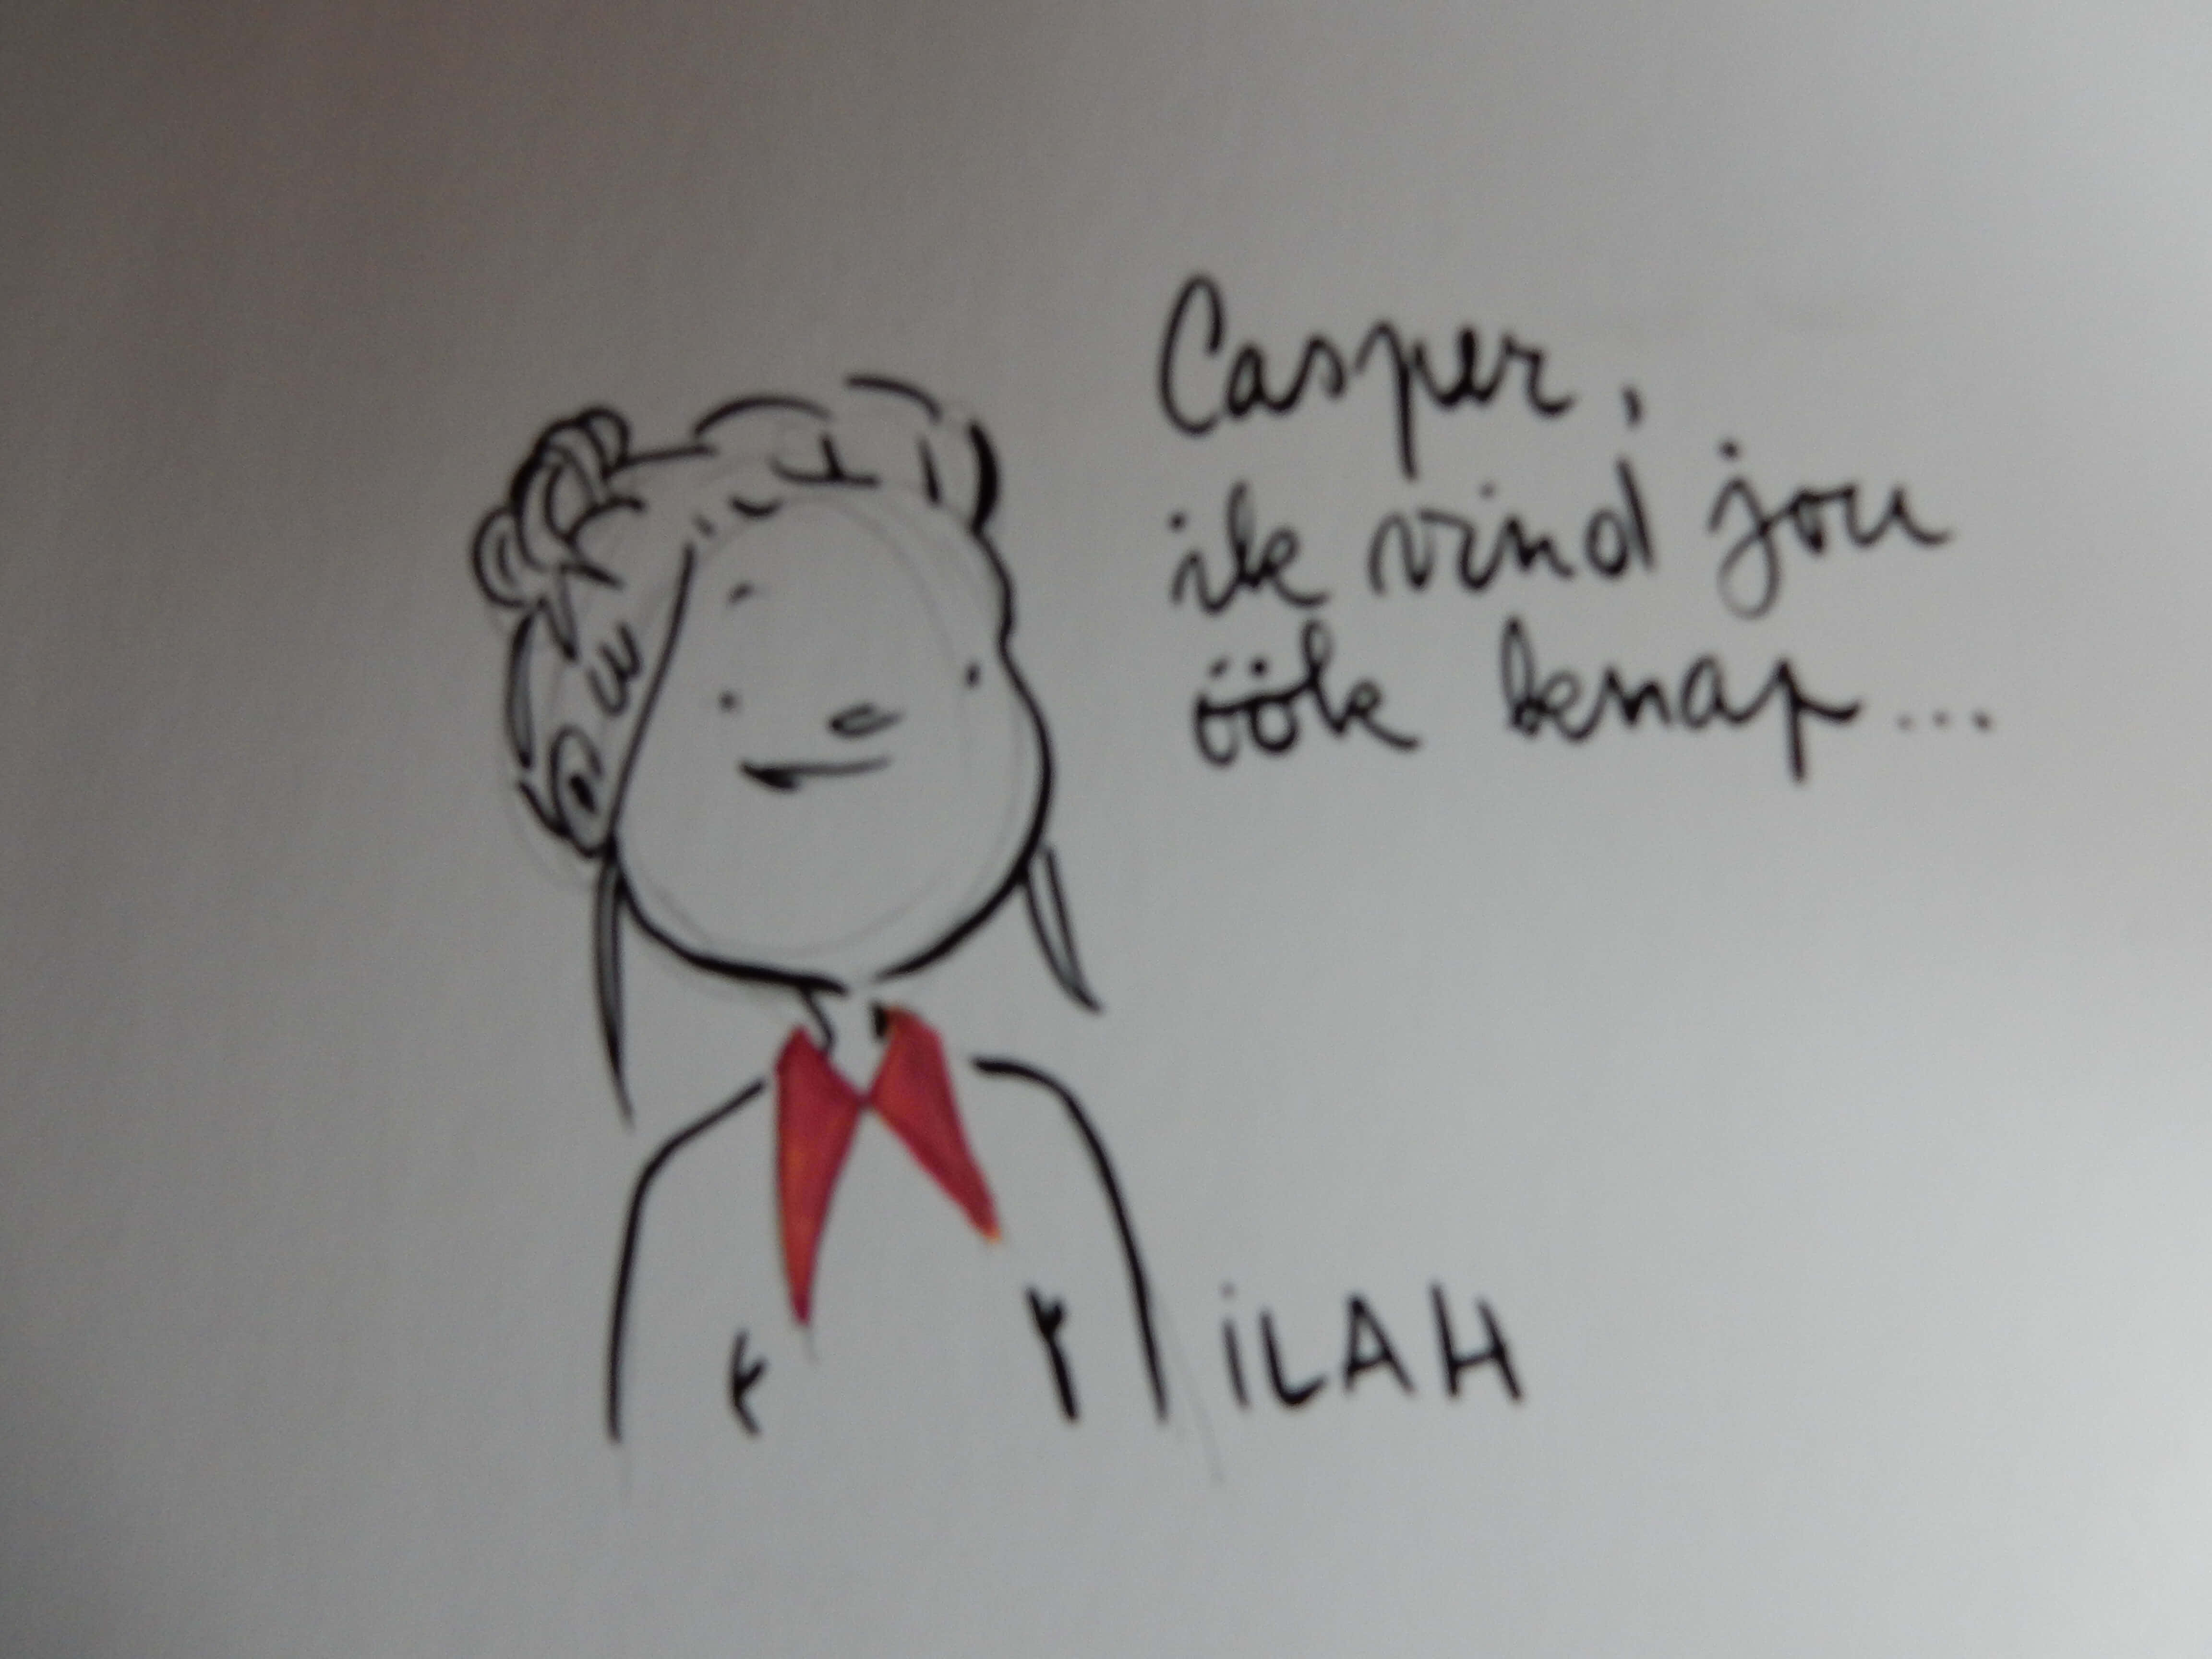 Casper,
ik vind jou
öök kenap...
iLAH